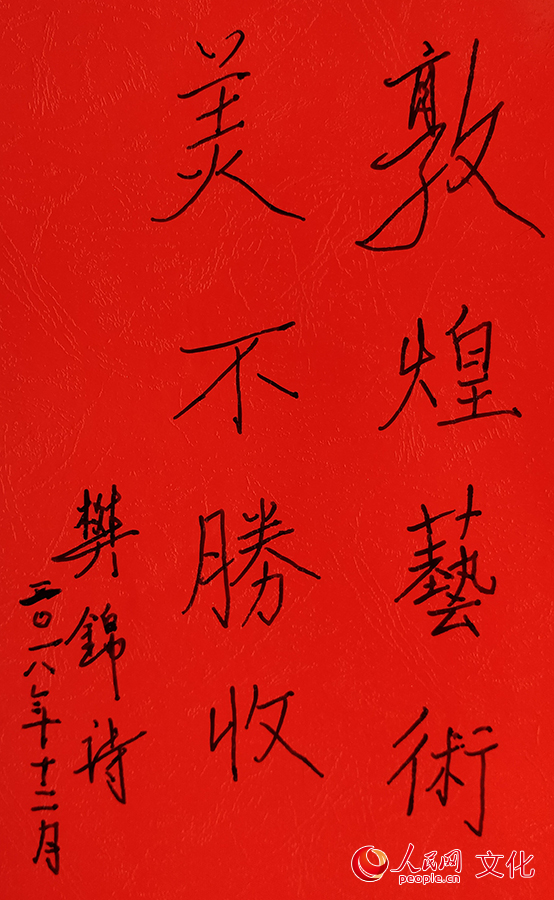 敦煌藝術
美不勝收
樊錦詩
二〇一八年十二月
人民网 文化
people.cn